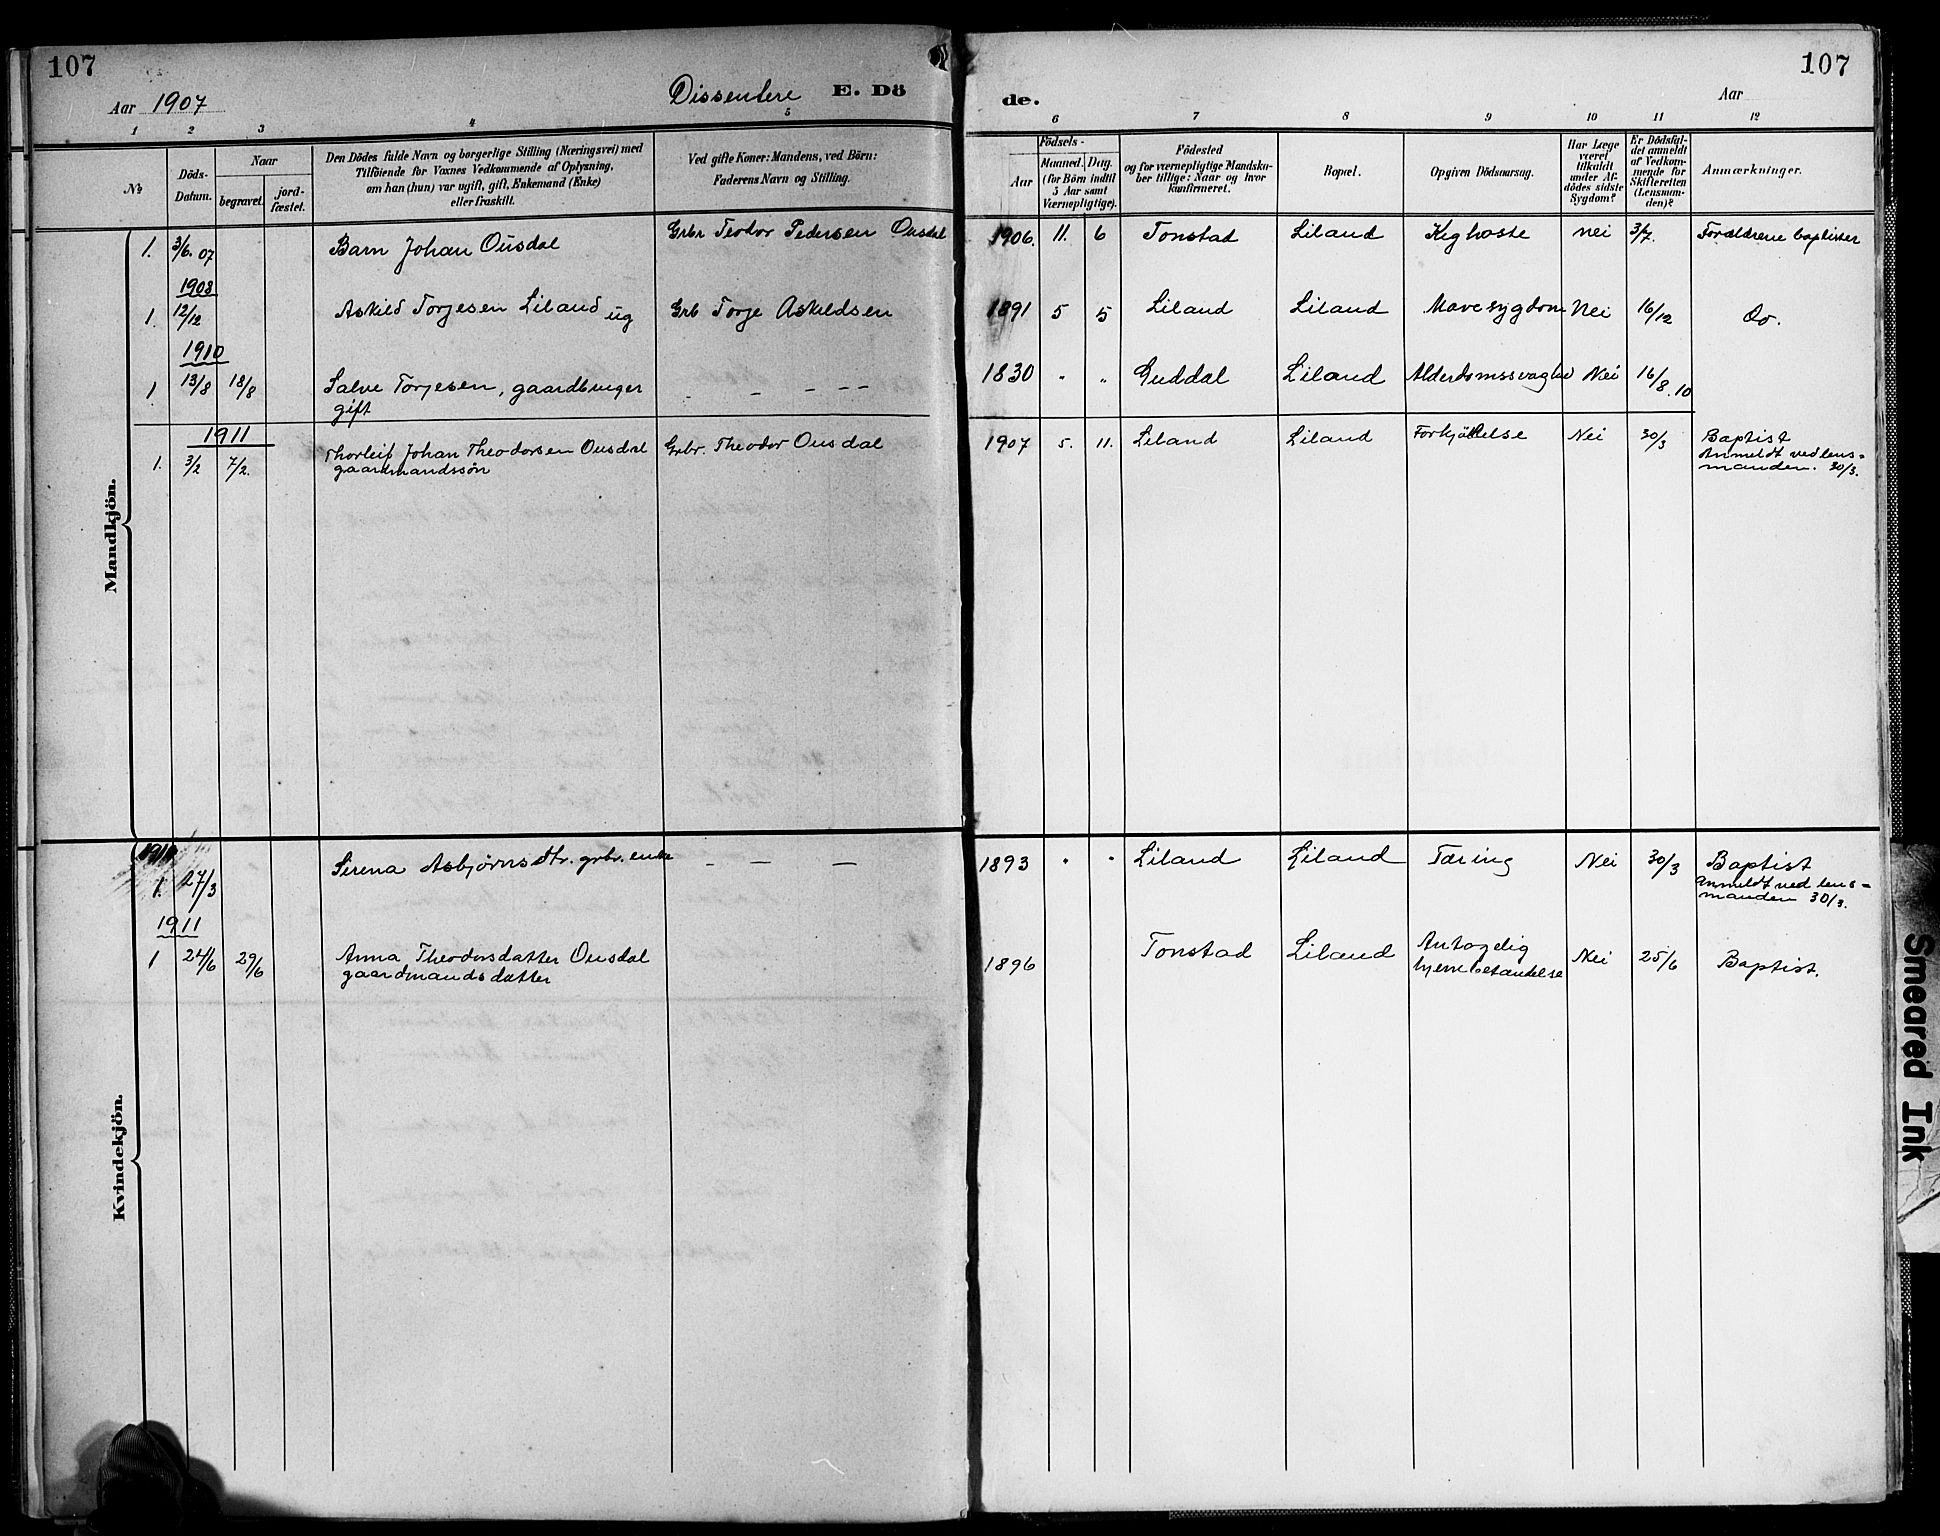 107
107
Aar 1907
Dissentere E. Dö
de.
Aar
1 2 3 4 5
6 7 8 9 10 11 12
№
Döds-
Datum.
Naar
begravet.
jord-
fæstet.
Den Dödes fulde Navn og borgerlige Stilling (Næringsvei) med
Tilföiende for Voxnes Vedkommende af Oplysning,
om han (hun) var ugift, gift, Enkemand (Enke)
eller fraskilt.
Ved gifte Koner: Mandens, ved Börn:
Faderens Navn og Stilling.
Födsels-
Aar
Maaned. Dag.
(for Börn indtil
3 Aar samt
Værnepligtige).
Födested
og for værnepligtige Mandska-
ber tillige: Naar og hvor
konfirmeret.
Bopæl.
Opgiven Dödsaarsag.
Har Læge
været
tilkaldt
under Af-
dödes sidste
Sygdom?
Er Dödsfal-
det anmeldt
af Vedkom-
mende for
Skifteretten
(Lensman-
den)?
Anmærkninger.
Mandkjön.
1. 3/6. 07 Barn Johan Ousdal Grbr Teodor Pedersen Ousdal 1906. 11. 6 Tonstad Liland Kighoste nei 3/7. Forældrene baptister
1908
1. 12/12 Askild Torjesen Liland ug Grb Torje Askildsen 1891 5 5 Liland Liland Mavesygdom Nei 16/12 Do.
1910
1 13/8 18/8 Salve Torjesen, gaardbruger - - - - - 1830 " " Guddal Liland Alderdomssvaghed Nei 16/8.10
gift
1911
1. 3/2 7/2. Thorleif Johan Theodorsen Ousdal Grbr. Theodor Ousdal 1907 5. 11. Liland Liland Forkjølelse Nei 30/3 Baptist
gaardmandssøn
Anmeldt ved lens=
manden. 30/3.
Kvindekjön.
1. 27/3 Serena Asbjørnsdtr. grbr. enke - - - 1893 " " Liland Liland Tæring Nei 30/3 Baptist
Anmeldt ved lens=
manden 30/3.
1911
1 24/6 29/6 Anna Theodorsdatter Ousdal 1896 Tonstad Liland Antagelig Nei 25/6 Baptist.
gaardmandsdatter
hjernebetændelse
Smeared Ink